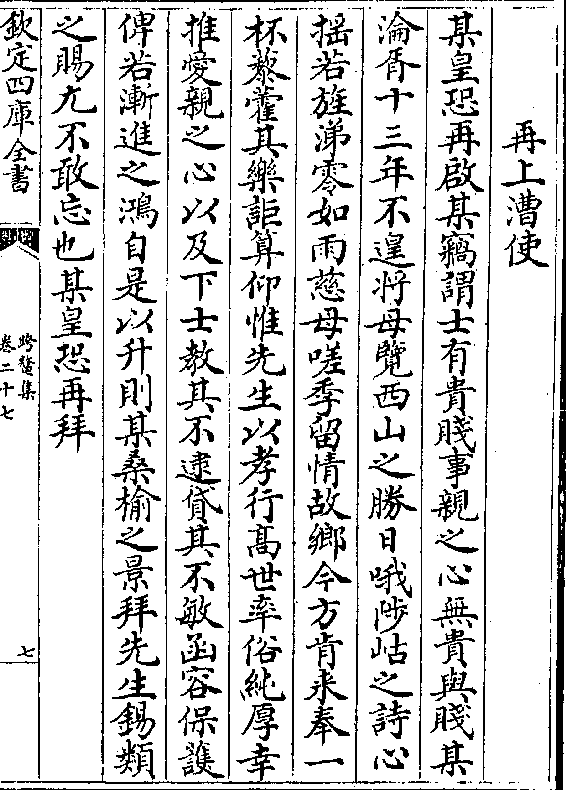 再上漕使
某皇恐再啟某竊謂士有貴賤事親之心無貴與賤某
淪胥十三年不遑将母覽西山之勝日哦陟岵之詩心
揺若旌涕零如雨慈母嗟季留情故鄉今方肯来奉一
杯藜藿其樂詎算仰惟先生以孝行髙世率俗純厚幸
推愛親之心以及下士教其不逮貸其不敏函容保護
俾若漸進之鴻自是以升則某桑榆之景拜先生錫類
之賜尢不敢忘也某皇恐再拜
欽定四庫全書
跨鼇集
卷二十七
七